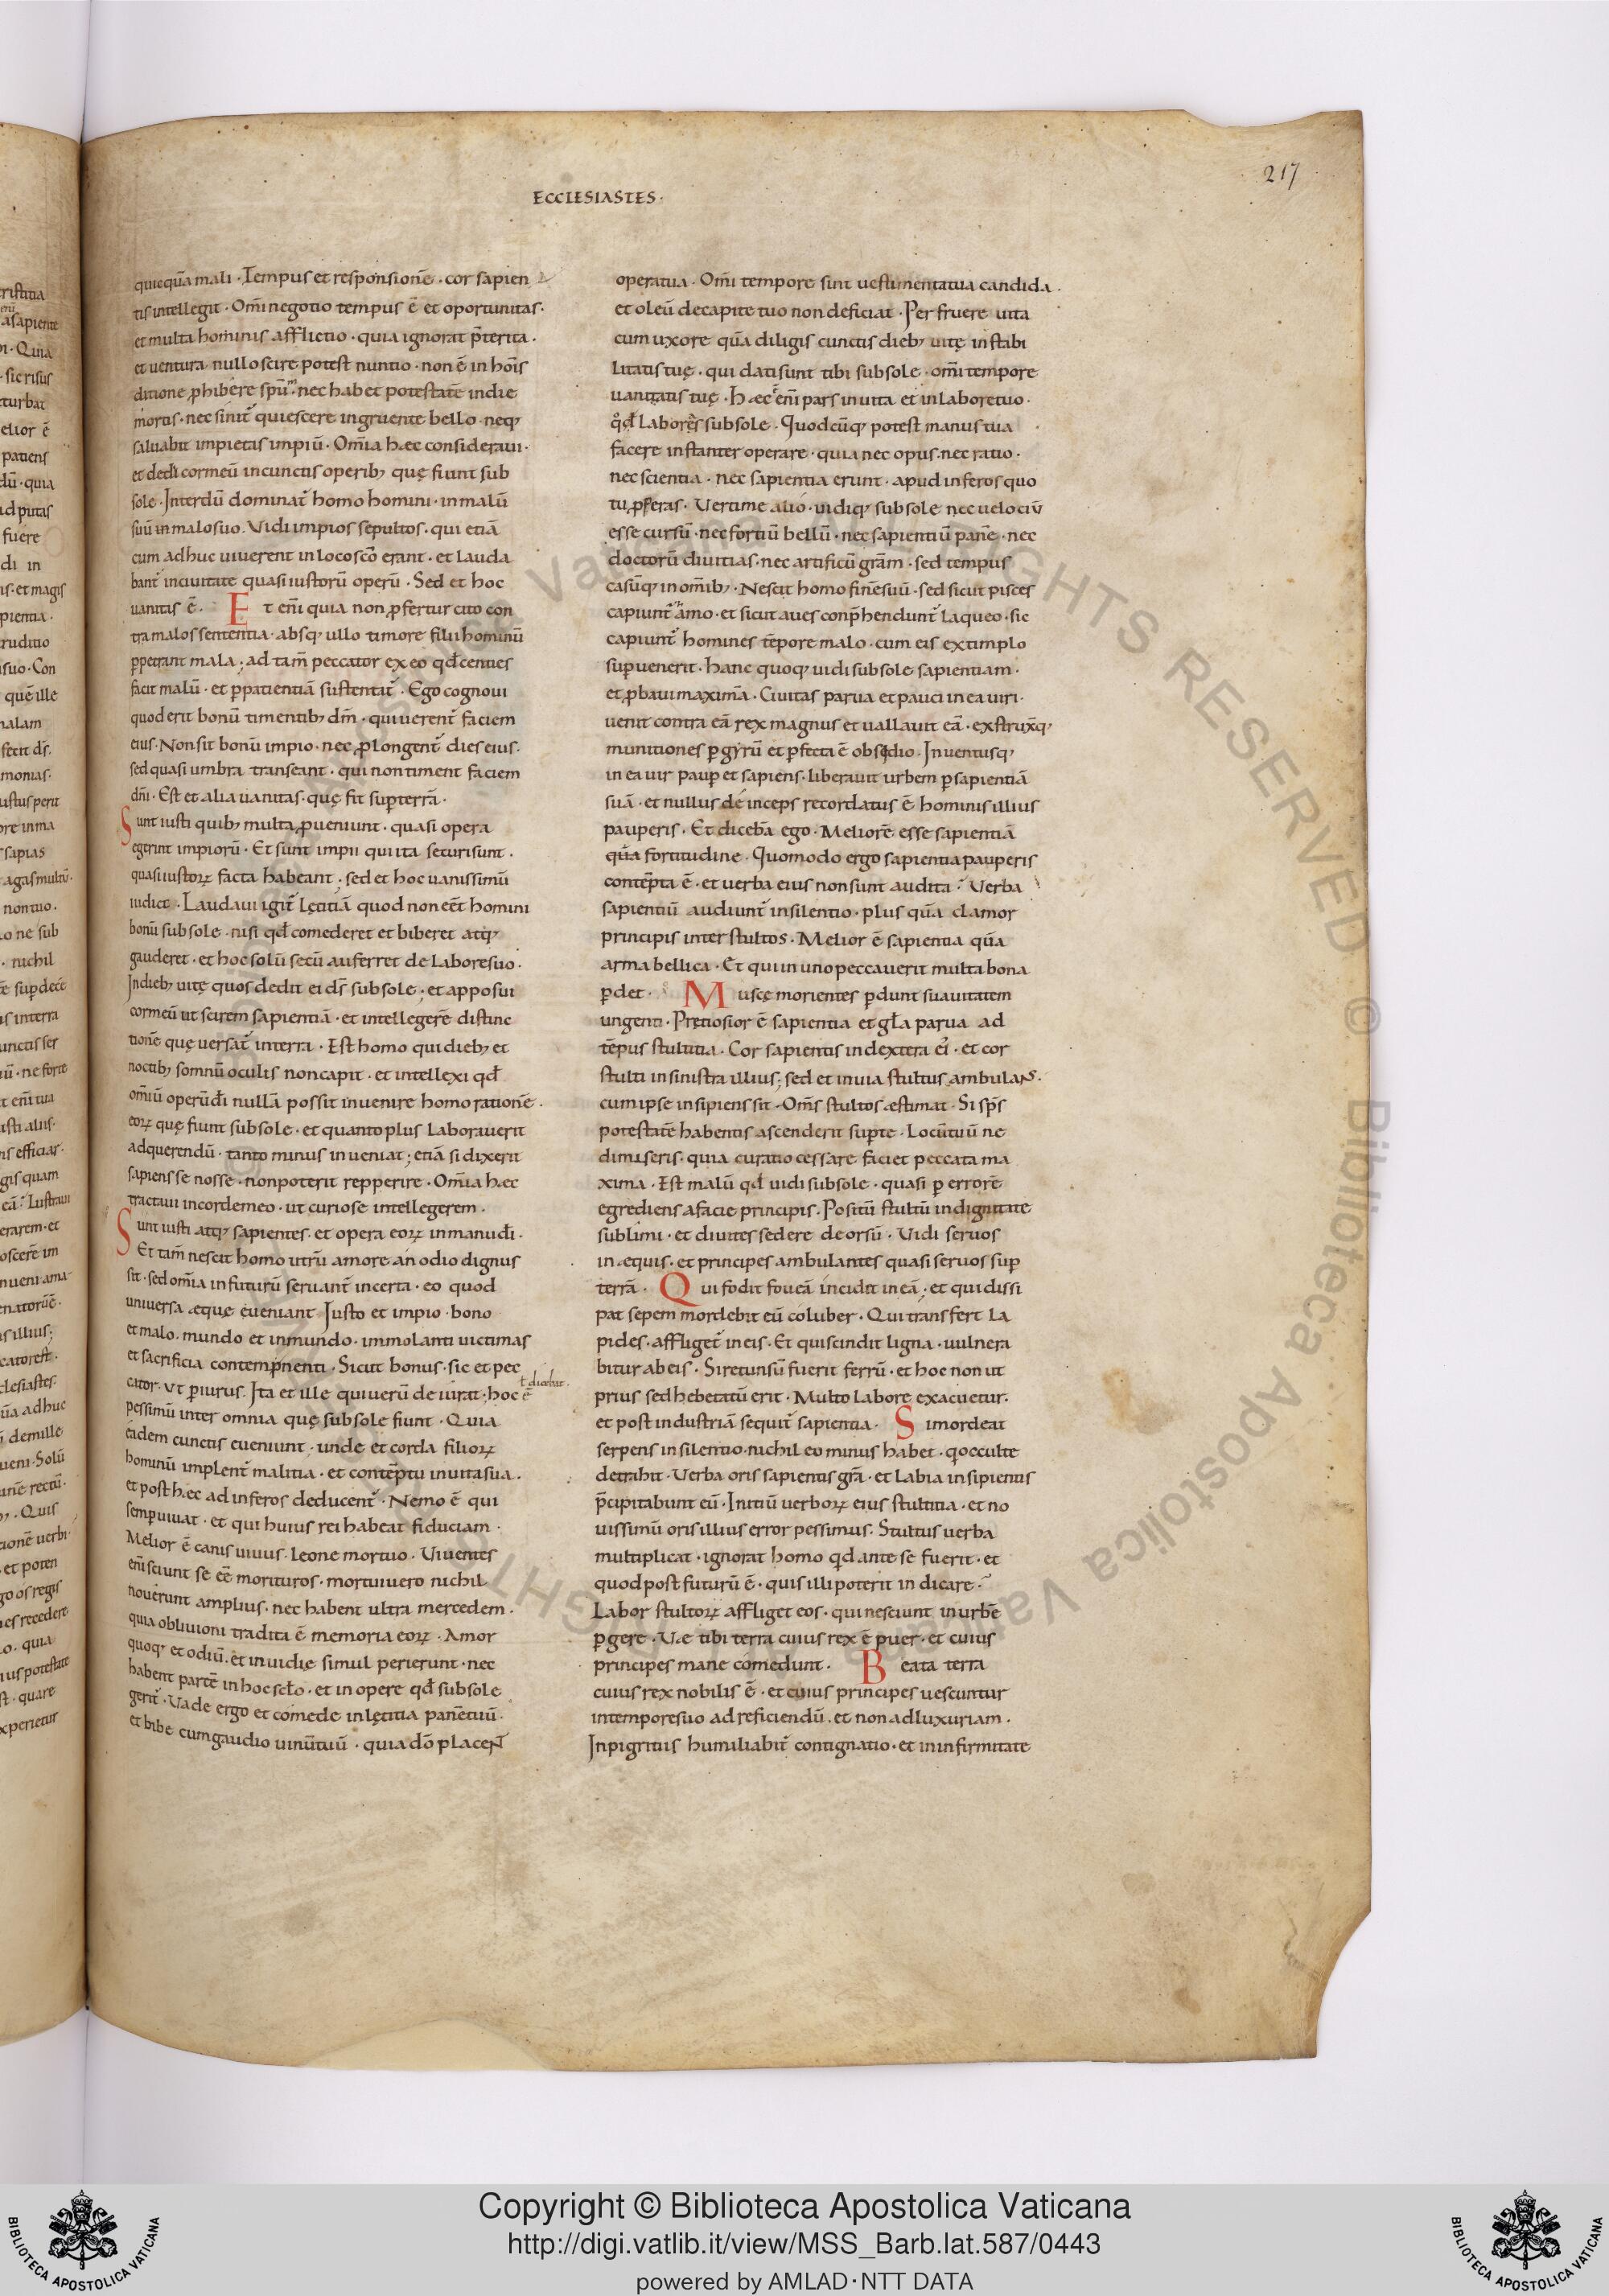 217
ECCLESIASTES·
quicquā mali · Tempus et responsionē · cor sapien
tis intellegit · Om̄i negotio tempus ē et oportunitas·
et multa hominis afflictio · quia ignorat p̄terita ·
et ventura· nullo scire potest nuntio · non ē in hoīs
ditione ꝓhibere sp̄m · nec habet potestatē in die
mortis · nec sinit᷑ quiescere ingruente bello · neq;
saluabit impietas impiū · Om̄ia hæc consideraui·
et dedi cor meū in cunctis operib; quę fiunt sub
sole · Interdū dominat᷑ homo homini · in malū
suū in malo suo · Vidi impios sepultos · qui etiā
cum adhuc uiuerent in loco sc̄o erant · et lauda
bant᷑ in ciuitate quasi iustorū operū · Sed et hoc
uanitas ē · Et en̄i quia non ꝓfertur cito con
tra malos sententia · absq; ullo timore filii hominū
ꝑpetrant mala ; ad tam̄ peccator ex eo qđ centies
facit malū · et ꝑ patientiā sustentat᷑ · Ego cognoui
quod erit bonū timentib; dm̄ · qui uerent᷑ faciem
eius · Non sit bonū impio · nec ꝓlongent᷑ dies eius·
sed quasi umbra transeant · qui non timent faciem
dn̄i · Est et alia uanitas · quę fit sup̄ terrā ·
Sunt iusti quib; multa ꝓueniunt · quasi opera
egerint impiorū · Et sunt impii qui ita securi sunt ·
quasi iustoꝝ facta habeant ; sed et hoc uanissimū
iudico · Laudaui igit᷑ lętitiā quod non eēt homini
bonū sub sole · nisi qđ comederet et biberet atq;
gauderet · et hoc solū secū auferret de labore suo ·
In dieb; uitę quos dedit ei ds̄ sub sole ; et apposui
cor meū ut scirem sapientiā · et intellegerē distinc
tionē quę uersat᷑ in terra · Est homo qui dieb; et
noctib; somnū oculis non capit · et intellexi qđ
om̄iū operū di̅ nullā possit inuenire homo rationē ·
eoꝝ quę fiunt sub sole · et quanto plus laborauerit
ad querendū · tanto minus inueniat ; etiā si dixerit
sapiens se nosse · non poterit repperire · Om̄ia hæc
tractaui in corde meo · ut curiose intellegerem ·
Sunt iusti atq; sapientes · et opera eoꝝ in manu di̅ ·
Et tam̄ nescit homo utrū amore an odio dignus
sit · sed om̄ia in futurū seruant᷑ incerta · eo quod
uniuersa æque eueniant Iusto et impio · bono
et malo · mundo et inmundo · immolanti uictimas
et sacrificia contemp̄nenti · Sicut bonus · sic et pec
cator · ut ꝑiurus · Ita et ille qui uerū deiurat · hoc ē
pessimū inter omnia quę sub sole fiunt · Quia
eadem cunctis eueniunt · unde et corda filioꝝ
hominū implent᷑ malitia · et contēptu in uita sua ·
et post hæc ad inferos deducent᷑ · Nemo ē qui
semp uiuat · et qui huius rei habeat fiduciam ·
Melior ē canis uiuus · leone mortuo · Viuentes
en̄i sciunt se eē morituros · mortui uero nichil
nouerunt amplius · nec habent ultra mercedem ·
quia obliuioni tradita ē memoria eoꝝ · Amor
quoq; et odiū · et inuidię simul perierunt · nec
habent partē in hoc scl̄o · et in opere qđ sub sole
gerit᷑ · Vade ergo et comede in lętitia panē tuū ·
et bibe cum gaudio uinū tuū · quia dō placent
operatua · Om̄i tempore sint uestimenta tua candida ·
et oleū de capite tuo non deficiat · Perfruere uita
cum uxore quā diligis cunctis dieb; uitę instabi
litatis tuę · qui dati sunt tibi sub sole · om̄i tempore
uanitatis tuę · Hæc ē en̄i pars in uita et in labore tuo ·
qđ laboras sub sole · Quodcūq; potest manus tua
facere instanter operare · quia nec opus · nec ratio ·
nec scientia · nec sapientia erunt · apud inferos quo
tu ꝓperas · Verti me alio · uidiq; sub sole nec uelociū
esse cursū · nec fortiū bellū · nec sapientiū panē · nec
doctorū diuitias · nec artificū grām · sed tempus
casūq; in om̄ib; · Nescit homo finē suū · sed sicut pisces
capiunt᷑ hamo · et sicut aues conp̄hendunt᷑ laqueo · sic
capiunt᷑ homines tēpore malo · cum eis extimplo
sup̄uenerit · hanc quoq; uidi sub sole sapientiam ·
et ꝓbaui maximā · Ciuitas parua et pauci in ea uiri ·
uenit contra eā rex magnus et uallauit eā · exstruxitq;
munitiones ꝑ gyrū et ꝑfecta ē obsidio · Inuentusq;
in ea uir pauꝑ et sapiens · liberauit urbem ꝑ sapientiā
suā · et nullus deinceps recordatus ē hominis illius
pauperis · Et dicebā ego · Meliorē esse sapientiā
quā fortitudine · Quomodo ergo sapientia pauperis
contēpta ē · et uerba eius non sunt audita · Verba
sapientiū audiunt᷑ in silentio · plus quā clamor
principis inter stultos · Melior ē sapientia quā
arma bellica · Et qui in uno peccauerit multa bona
ꝑdet · Muscę morientes ꝑdunt suauitatem
ungenti · Pretiosior ē sapientia et gl̄a parua ad
tēpus stultitia · Cor sapientis in dextera ei᷒ · et cor
stulti in sinistra illius ; sed et in uia stultus ambulans ·
cum ipse insipiens sit · Om̄s stultos æstimat · Si sp̄s
potestatē habentis ascenderit sup te · Locū tuū ne
dimiseris · quia curatio cessare faciet peccata ma
xima · Est malū qđ uidi sub sole · quasi ꝑ errorē
egrediens a facie principis · Positū stultū in dignitate
sublimi · et diuites sedere deorsū · Vidi seruos
in æquis · et principes ambulantes quasi seruos sup
terrā · Qui fodit foueā incidit in eā ; et qui dissi
pat sepem mordebit eū coluber · Qui transfert la
pides · affliget᷑ in eis · Et qui scindit ligna · uulnera
bitur ab eis · Si retunsū fuerit ferrū · et hoc non ut
prius sed hebetatū erit · Multo labore exacuetur ·
et post industriā sequit᷑ sapientia · Si mordeat
serpens in silentio · nichil eo minus habet · q occulte
detrahit · Verba oris sapientis grā · et labia insipientis
p̄cipitabunt eū · Initiū uerboꝝ eius stultitia · et no
uissimū oris illius error pessimus · Stultus uerba
multiplicat · ignorat homo qd ante se fuerit · et
quod post futurū ē · quis illi poterit indicare ·
Labor stultoꝝ affliget eos · qui nesciunt in urbē
ꝑgere · Væ tibi terra cuius rex ē puer · et cuius
principes mane comedunt · Beata terra
cuius rex nobilis ē · et cuius principes uescuntur
in tempore suo ad reficiendū · et non ad luxuriam ·
In pigritiis humiliabit᷑ contignatio · et in infirmitate
Copyright © Biblioteca Apostolica Vaticana
http://digi.vatlib.it/view/MSS_Barb.lat.587/0443
powered by AMLAD·NTT DATA
BIBLIOTECA APOSTOLICA VATICANA
BIBLIOTECA APOSTOLICA VATICANA